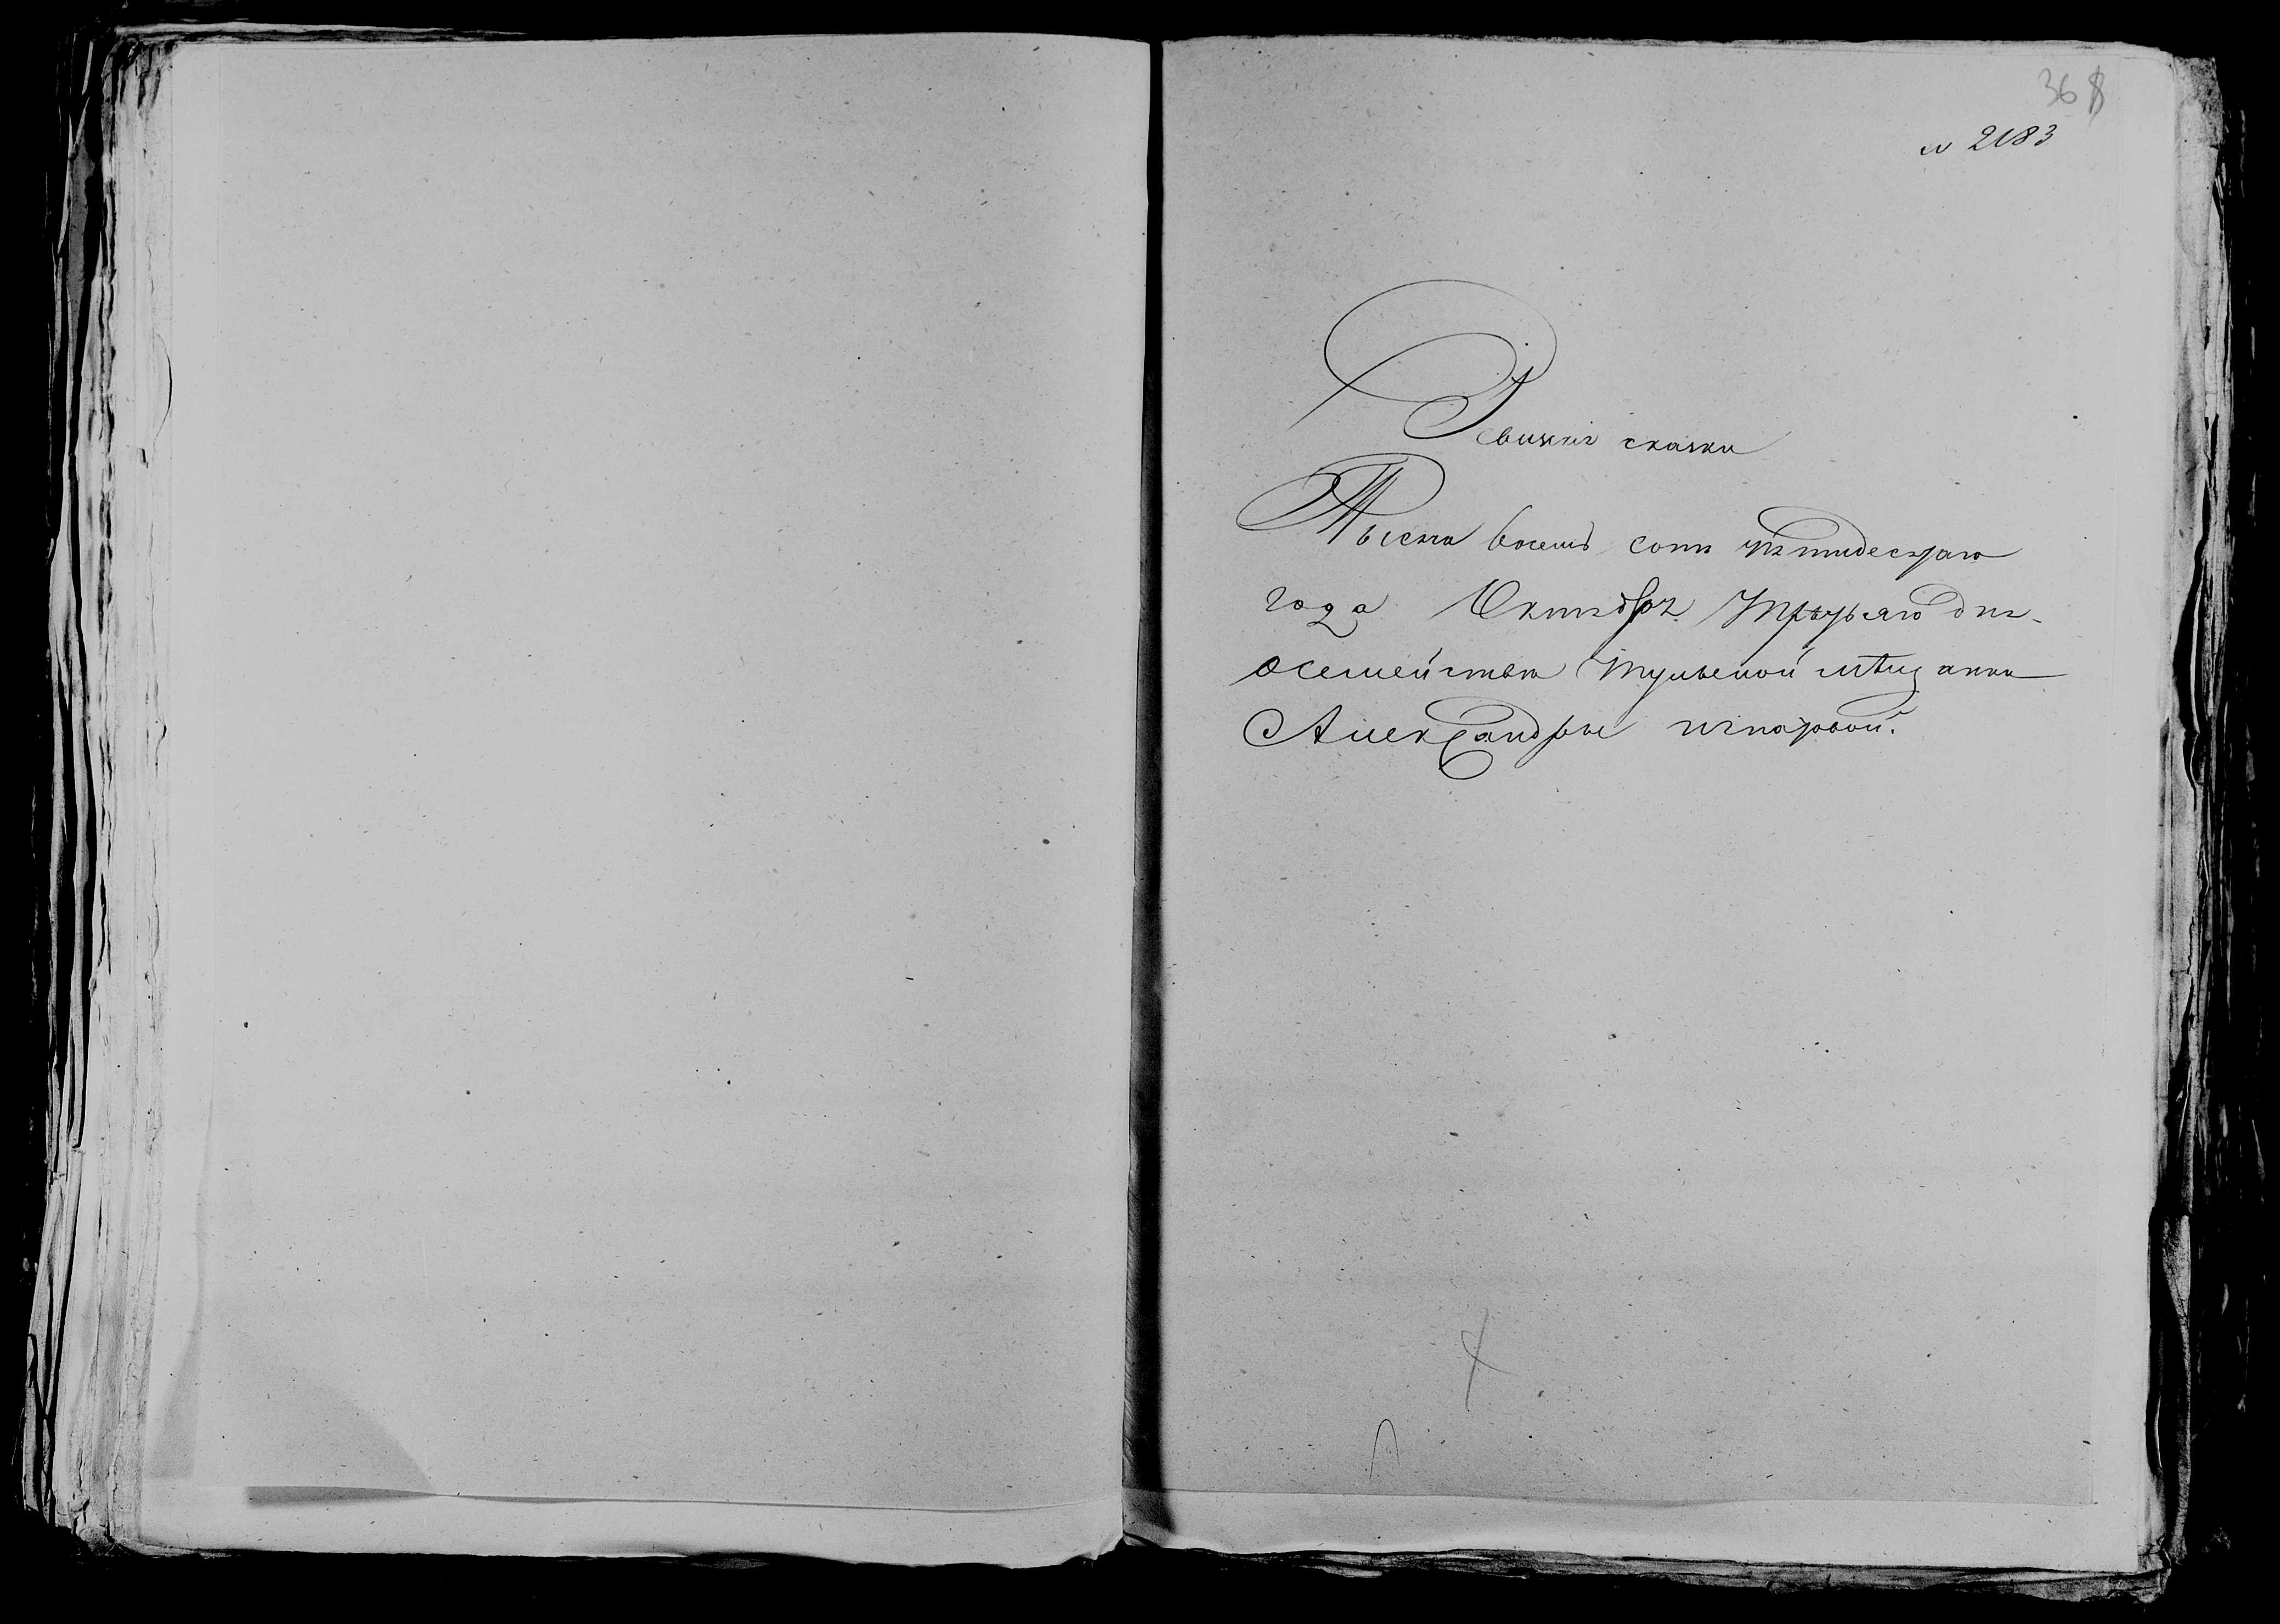 368
№ 2183
Ревизкая сказки
Тысеча восемь сотъ пятидесятаго
года Октября третьяго дня
осемействе тульской мѣщанки
Александры